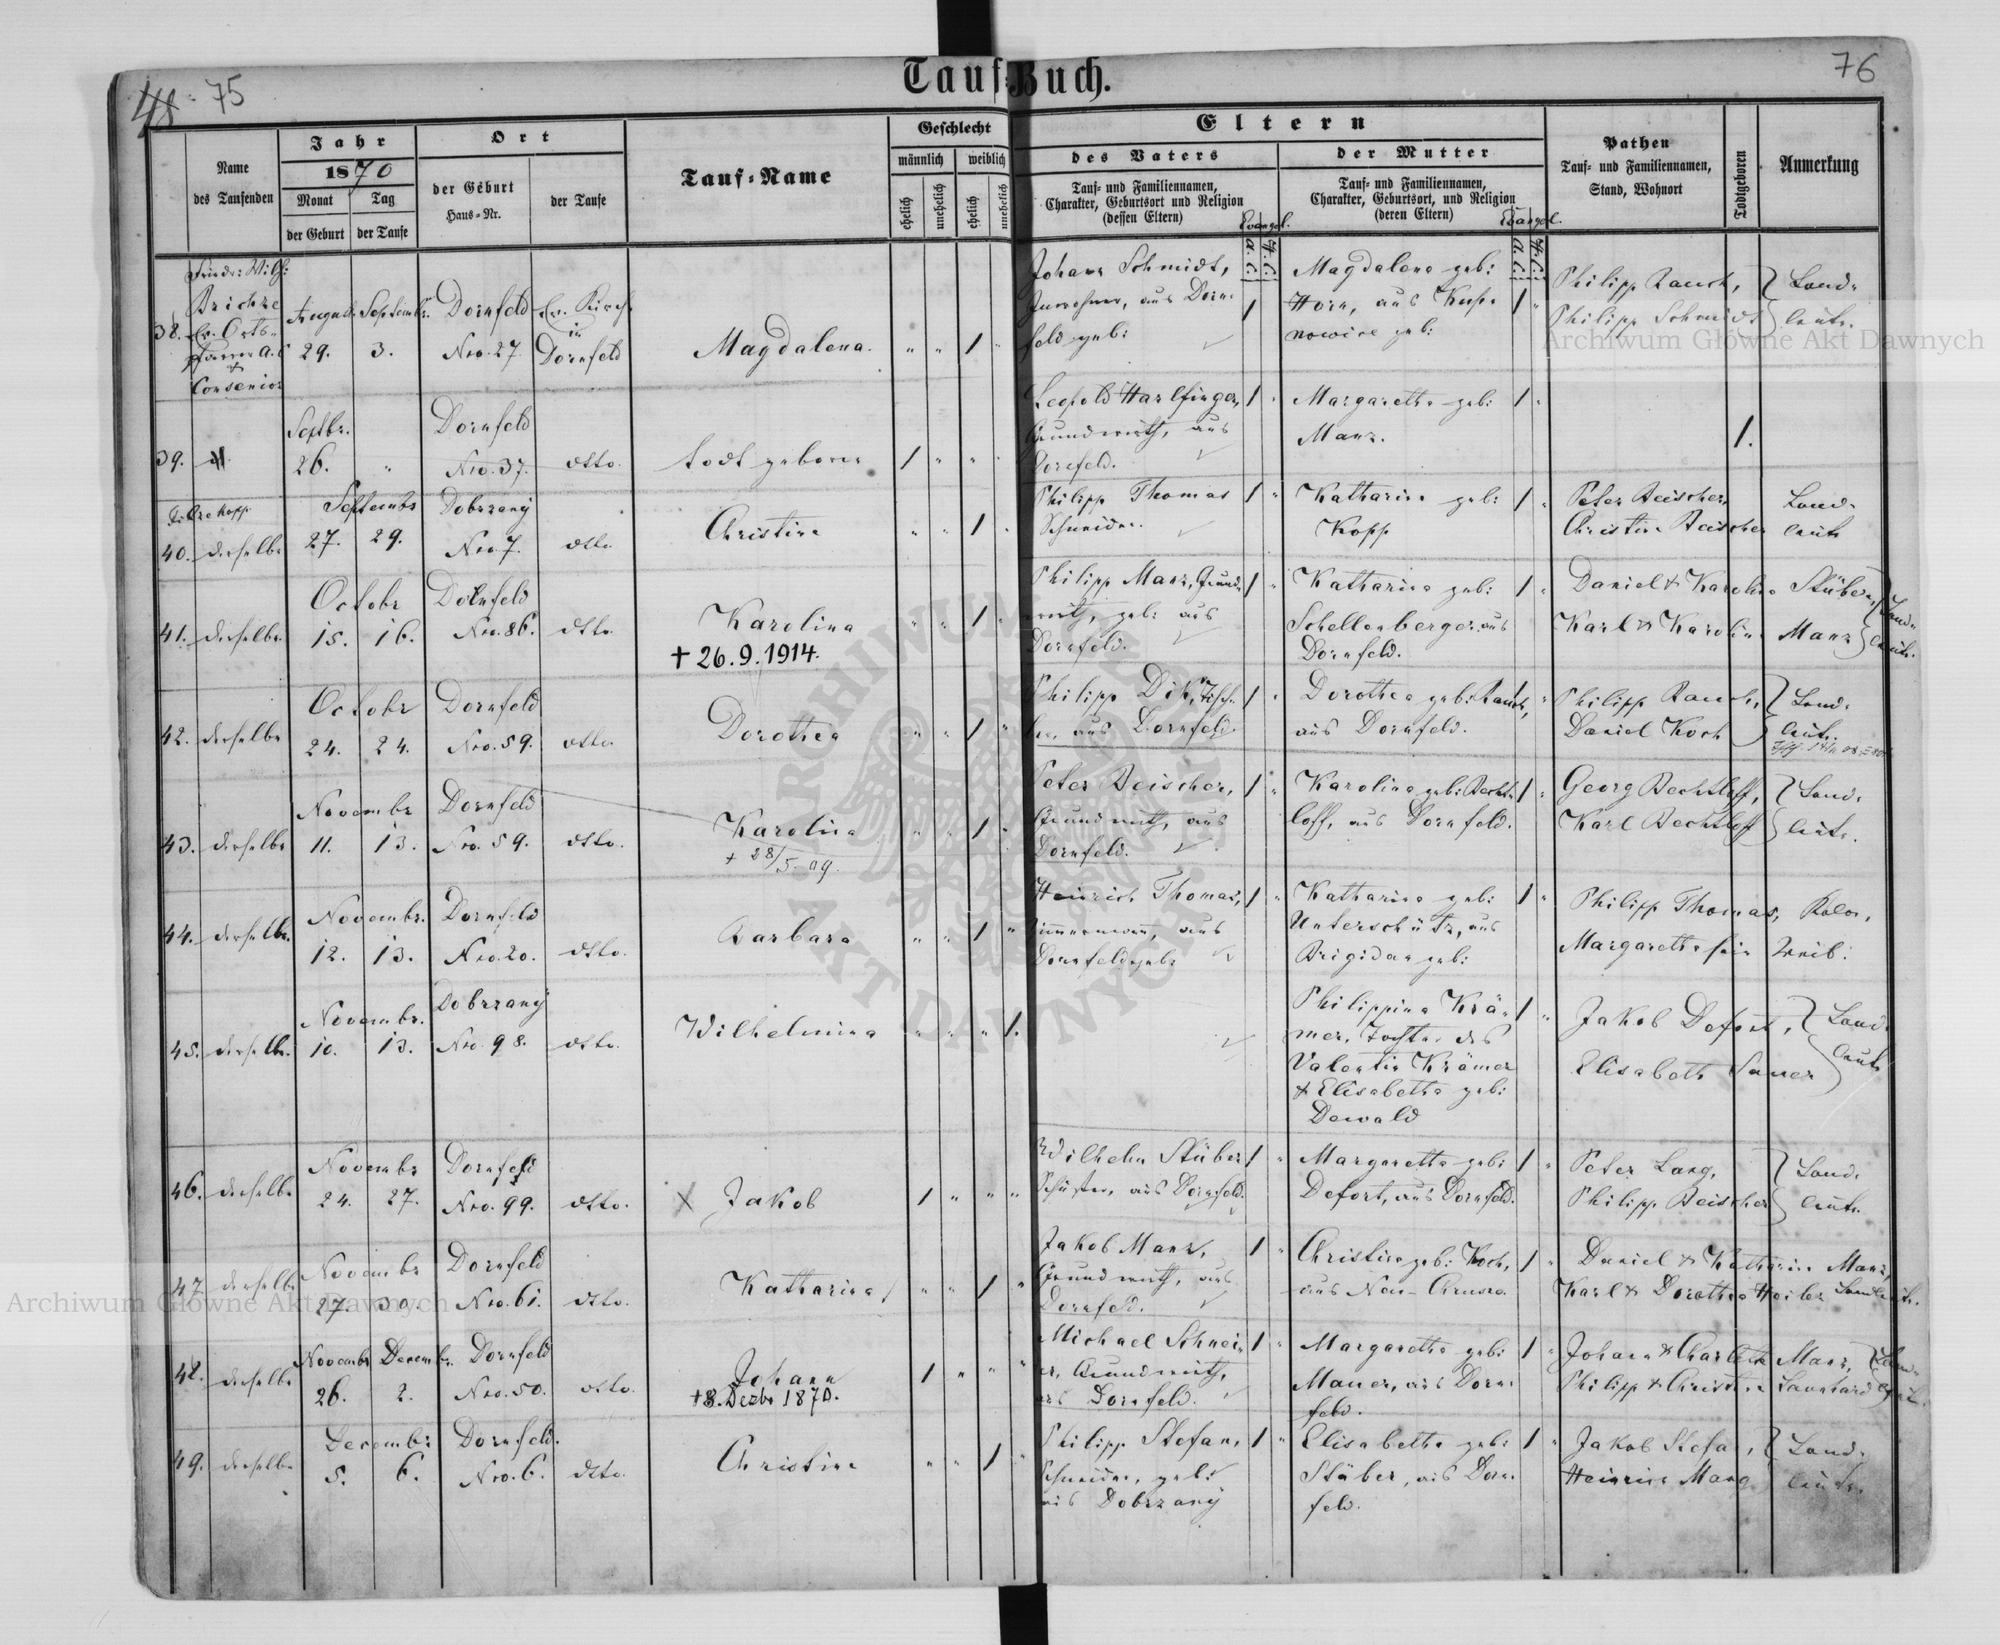 48 75
76
Tauf-Buch.
Name des Taufenden
Jahr 1870
Monat der Geburt
Tag der Taufe
Ort
der Geburt Haus-Nr.
der Taufe
Tauf-Name
Geschlecht
männlich weiblich
ehelich unehelich ehelich unehelich
Eltern
des Vaters
Tauf- und Familiennamen,
Charakter, Geburtsort und Religion
(dessen Eltern)
Evangel.
A. C. H. C.
der Mutter
Tauf- und Familiennamen,
Charakter, Geburtsort, und Religion
(deren Eltern)
Evangel.
A. C. H. C.
Pathen
Tauf- und Familiennamen,
Stand, Wohnort
Todtgeboren
Anmerkung
38. Friedr: Wilh:
Ev. Orts-
pfarrer A. C.
&
Consenior
August 29. Septembr. 3. Dornfeld Nro. 27. Ev. Kirche in Dornfeld
Magdalena. " " 1 "
Johann Schmidt,
Inwohner, aus Dorn-
feld geb: 1
Magdalena geb:
Horn, aus
geb: 1 "
Philipp Rauch,
Philipp Schmidt } Land-
leute.
39. Septbr. 26. " Dornfeld Nro. 37. dtto.
todt geboren 1 " " "
Leopold Harlfinger,
Grundwirth, aus
Dornfeld. 1 "
Margaretha geb:
Manz. 1 "
1.
40. derselbe Septembr 27. 29. Dobrzany Nro. 7. dtto.
Christine " " 1 "
Philipp Thomas
Schneider. 1 "
Katharina geb:
Kopp 1 "
Peter Reischer,
Christine Reischer Land-
leute
41. derselbe Octobr 15. 16. Dornfeld Nro. 86. dtto.
Karolina
+ 26.9.1914. " " 1 "
Philipp Manz, Grund-
wirth, geb: aus
Dornfeld. 1 "
Katharina geb:
Schellenberger, aus
Dornfeld. 1 "
Daniel & Karolina Stüber,
Karl & Karolina Manz } Land-
leute.
42. derselbe Octobr 24. 24. Dornfeld Nro. 59. dtto.
Dorothea " " 1 "
Philipp Dik, Tisch-
ler, aus Dornfeld. 1 "
Dorothea geb: Rauch,
aus Dornfeld. "
Philipp Rauch,
Daniel Koch } Land-
leute.
43. derselbe Novembr 11. 13. Dornfeld Nro. 59. dtto.
Karolina
+ 28/5. 09. " " 1 "
Peter Reischer,
Grundwirth, aus
Dornfeld. 1 "
Karolina geb: Becht-
loff, aus Dornfeld. 1 "
Georg Bechtloff,
Karl Bechtloff } Land-
leute.
44. derselbe Novembr. 12. 13. Dornfeld Nro. 20. dtto.
Barbara " " 1 "
Heinrich Thomas,
Zimmermann, aus
Dornfeld geb: 1 "
Katharina geb:
Unterschütz, aus
Brigidau geb: 1 "
Philipp Thomas, Kolon.
Margaretha sein Weib.
45. derselbe. Novembr. 10. 13. Dobrzany Nro. 98. dtto.
Wilhelmina " " " 1.
Philippina Krä-
mer, Tochter des
Valentin Krämer
& Elisabetha geb:
Dewald 1 "
Jakob Defort,
Elisabeth Sauer } Land-
leute
46. derselbe Novembr 24. 27. Dornfeld Nro. 99. dtto.
X Jakob 1 " " "
Wilhelm Stüber
Schuster, aus Dornfeld. 1 "
Margaretha geb:
Defort, aus Dornfeld. 1 "
Peter Lang,
Philipp Reischer } Land-
leute.
47 derselbe Novembr 27. 30. Dornfeld Nro. 61. dtto.
Katharina " " 1 "
Jakob Manz,
Grundwirth, aus
Dornfeld. 1 "
Christine geb: Koch,
aus Neu- 1 "
Daniel & Katharina Manz,
Karl & Dorothea Landleute.
48. derselbe Novembr 26. Decembr. 2. Dornfeld Nro. 50. dtto.
Johann
+ 3. Dezbr 1870. 1 " " "
Michael Schnei-
er, Grundwirth,
aus Dornfeld. 1 "
Margaretha geb:
Mauer, aus Dorn-
feld. 1 "
Johann & Manz,
Philipp & Christine } Land-
leute.
49. derselbe Decembr 5. 6. Dornfeld. Nro. 6. dtto.
Christine " " 1 "
Philipp Stefan,
Schneider, geb:
aus Dobrzany 1 "
Elisabetha geb:
Stüber, aus Dorn-
feld. 1 "
Jakob Stefan,
Heinrich Mang } Land-
leute.
Archiwum Główne Akt Dawnych
Archiwum Główne Akt Dawnych
ARCHIWUM GŁÓWNE AKT DAWNYCH